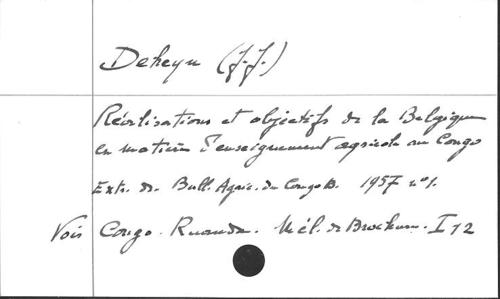 Deheyn (J.J.)
Réalisations et objectifs de la Belgique
en matière d'enseignement agricole au Congo
Extr. de Bull. Agric. du Congo B. 1957 n° 1.
Voir Congo. Ruanda. Mél. de Brochures. I 12